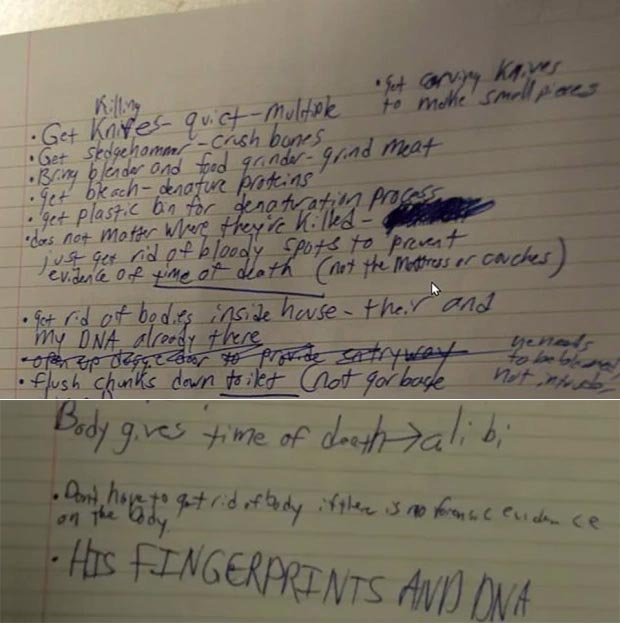 Killing
• Get Knives - quiet - multiple
• Get carving knives
to make small pieces
• Get sledgehammer - crush bones
• Bring blender and food grinder - grind meat
• get bleach - denature proteins
• get plastic bin for denaturation process
• does not matter where they're killed -
just get rid of bloody spots to prevent
evidence of time of death (not the mattress or couches)
• get rid of bodies inside house - their and
my DNA already there
• open up doggie door to provide entryway
he needs
to be blamed,
not intruder
• flush chunks down toilet (not garbage
Body gives time of death → alibi
• Don't have to get rid of body if there is no forensic evidence
on the body
• HIS FINGERPRINTS AND DNA